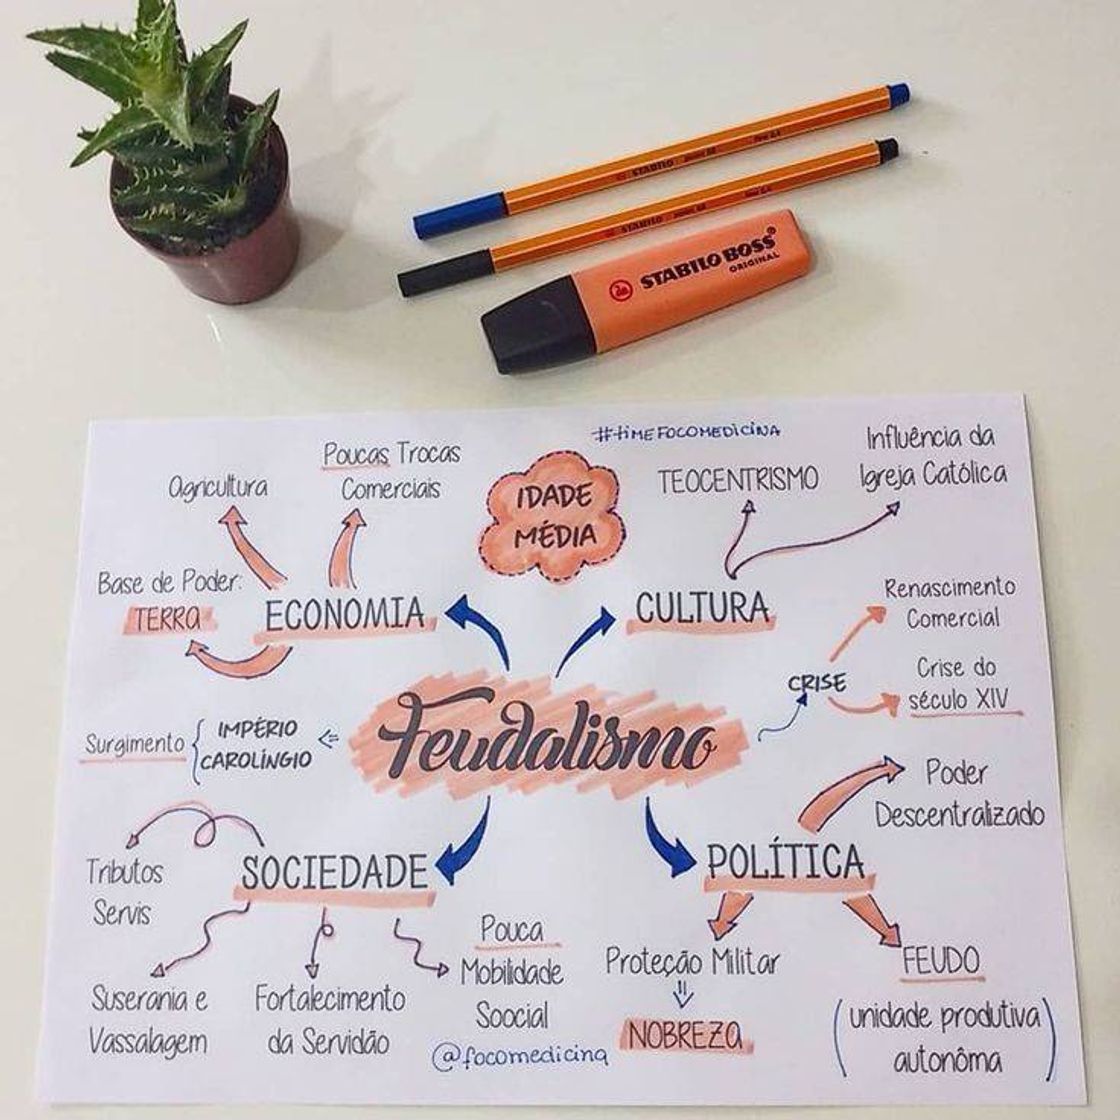 STABILO point 88 fine 0,4
STABILO point 88 fine 0,4
STABILO BOSS®
ORIGINAL
#timEFOCOMEDICINA
IDADE
MÉDIA
Poucas Trocas
Comerciais
Agricultura
Base de Poder:
TERRA
ECONOMIA
TEOCENTRISMO
Influência da
Igreja Católica
CULTURA
Renascimento
Comercial
CRISE
Crise do
século XIV
Feudalismo
Surgimento
IMPÉRIO
CAROLÍNGIO
Poder
Descentralizado
POLÍTICA
Proteção Militar
NOBREZA
FEUDO
(unidade produtiva
autonôma)
SOCIEDADE
Tributos
Servis
Suserania e
Vassalagem
Fortalecimento
da Servidão
Pouca
Mobilidade
Soocial
@focomedicina